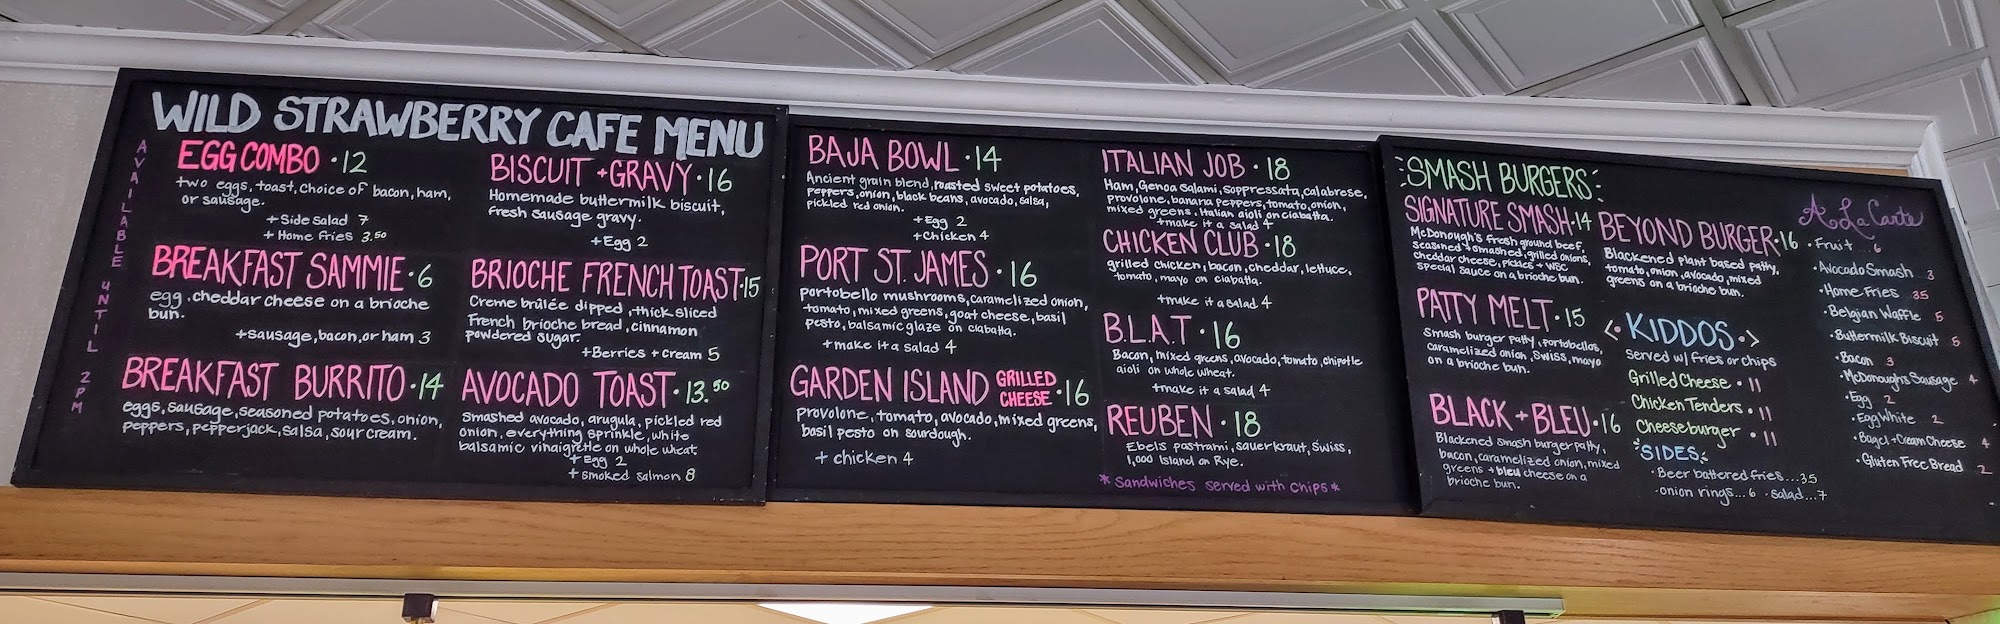 WILD STRAWBERRY CAFE MENU
AVAILABLE UNTIL 2PM
EGG COMBO · 12
two eggs, toast, choice of bacon, ham,
or sausage.
+ Side salad 7
+ Home Fries 3.50
BREAKFAST SAMMIE · 6
egg, cheddar cheese on a brioche
bun.
+sausage, bacon, or ham 3
BREAKFAST BURRITO · 14
eggs, sausage, seasoned potatoes, onion,
peppers, pepperjack, salsa, sour cream.
BISCUIT + GRAVY · 16
Homemade buttermilk biscuit,
fresh sausage gravy.
+ Egg 2
BRIOCHE FRENCH TOAST · 15
Creme brûlée dipped, thick sliced
French brioche bread, cinnamon
powdered sugar.
+ Berries + cream 5
AVOCADO TOAST · 13.50
Smashed avocado, arugula, pickled red
onion, everything sprinkle, white
balsamic vinaigrette on whole wheat
+ Egg 2
+ smoked salmon 8
BAJA BOWL · 14
Ancient grain blend, roasted sweet potatoes,
peppers, onion, black beans, avocado, salsa,
pickled red onion.
+ Egg 2
+ Chicken 4
PORT ST. JAMES · 16
portobello mushrooms, caramelized onion,
tomato, mixed greens, goat cheese, basil
pesto, balsamic glaze on ciabatta.
+ make it a salad 4
GARDEN ISLAND GRILLED CHEESE · 16
provolone, tomato, avocado, mixed greens,
basil pesto on sourdough.
+ chicken 4
ITALIAN JOB · 18
Ham, Genoa salami, Soppressata, calabrese,
provolone, banana peppers, tomato, onion,
mixed greens. Italian aioli on ciabatta.
+make it a salad 4
CHICKEN CLUB · 18
grilled chicken, bacon, cheddar, lettuce,
tomato, mayo on ciabatta.
+make it a salad 4
B.L.A.T · 16
Bacon, mixed greens, avocado, tomato, chipotle
aioli on whole wheat.
+make it a salad 4
REUBEN · 18
Ebels pastrami, sauerkraut, Swiss,
1,000 Island on Rye.
* Sandwiches served with chips *
SMASH BURGERS
SIGNATURE SMASH · 14
McDonough's fresh ground beef,
seasoned + smashed, grilled onions,
cheddar cheese, pickles + WSC
special sauce on a brioche bun.
PATTY MELT · 15
Smash burger patty, portobellos,
caramelized onion, Swiss, mayo
on a brioche bun.
BLACK + BLEU · 16
Blackened smash burger patty,
bacon, caramelized onion, mixed
greens + bleu cheese on a
brioche bun.
BEYOND BURGER · 16
Blackened plant based patty,
tomato, onion, avocado, mixed
greens on a brioche bun.
KIDDOS
served w/ fries or chips
Grilled Cheese · 11
Chicken Tenders · 11
Cheeseburger · 11
SIDES
· Beer battered fries...35
· onion rings...6 · salad...7
A La Carte
· Fruit .. 6
· Avocado Smash 3
· Home Fries 35
· Belgian Waffle 5
· Buttermilk Biscuit 5
· Bacon 3
· McDonoughs Sausage 4
· Egg 2
· Egg White 2
· Bagel + Cream Cheese 4
· Gluten Free Bread 2